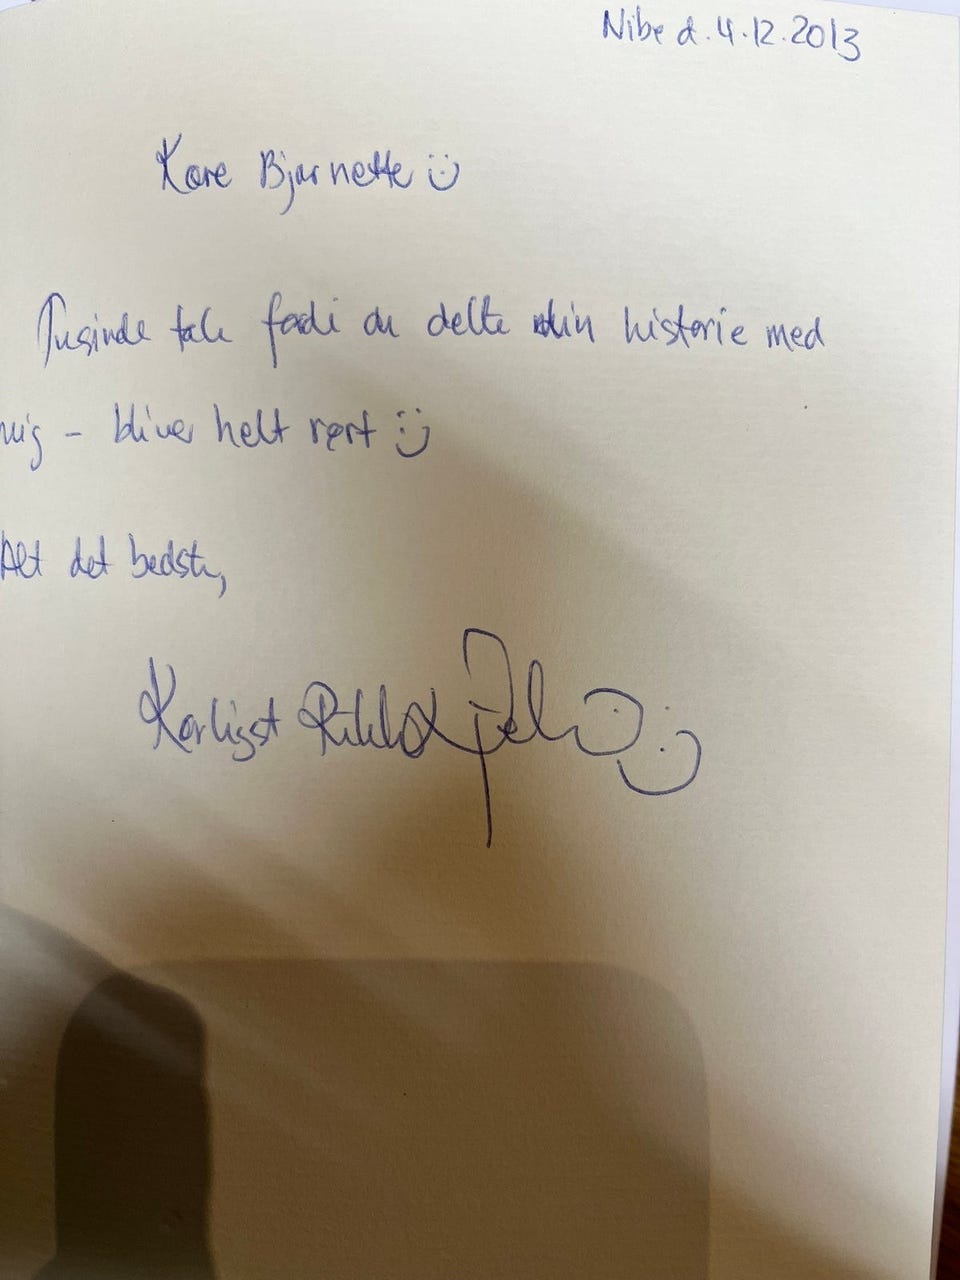 Nibe d. 4.12.2013
Kære Bjarnette :)
Tusinde tak fordi du delte din historie med
mig - bliver helt rørt :)
Alt det bedste,
Kærligst